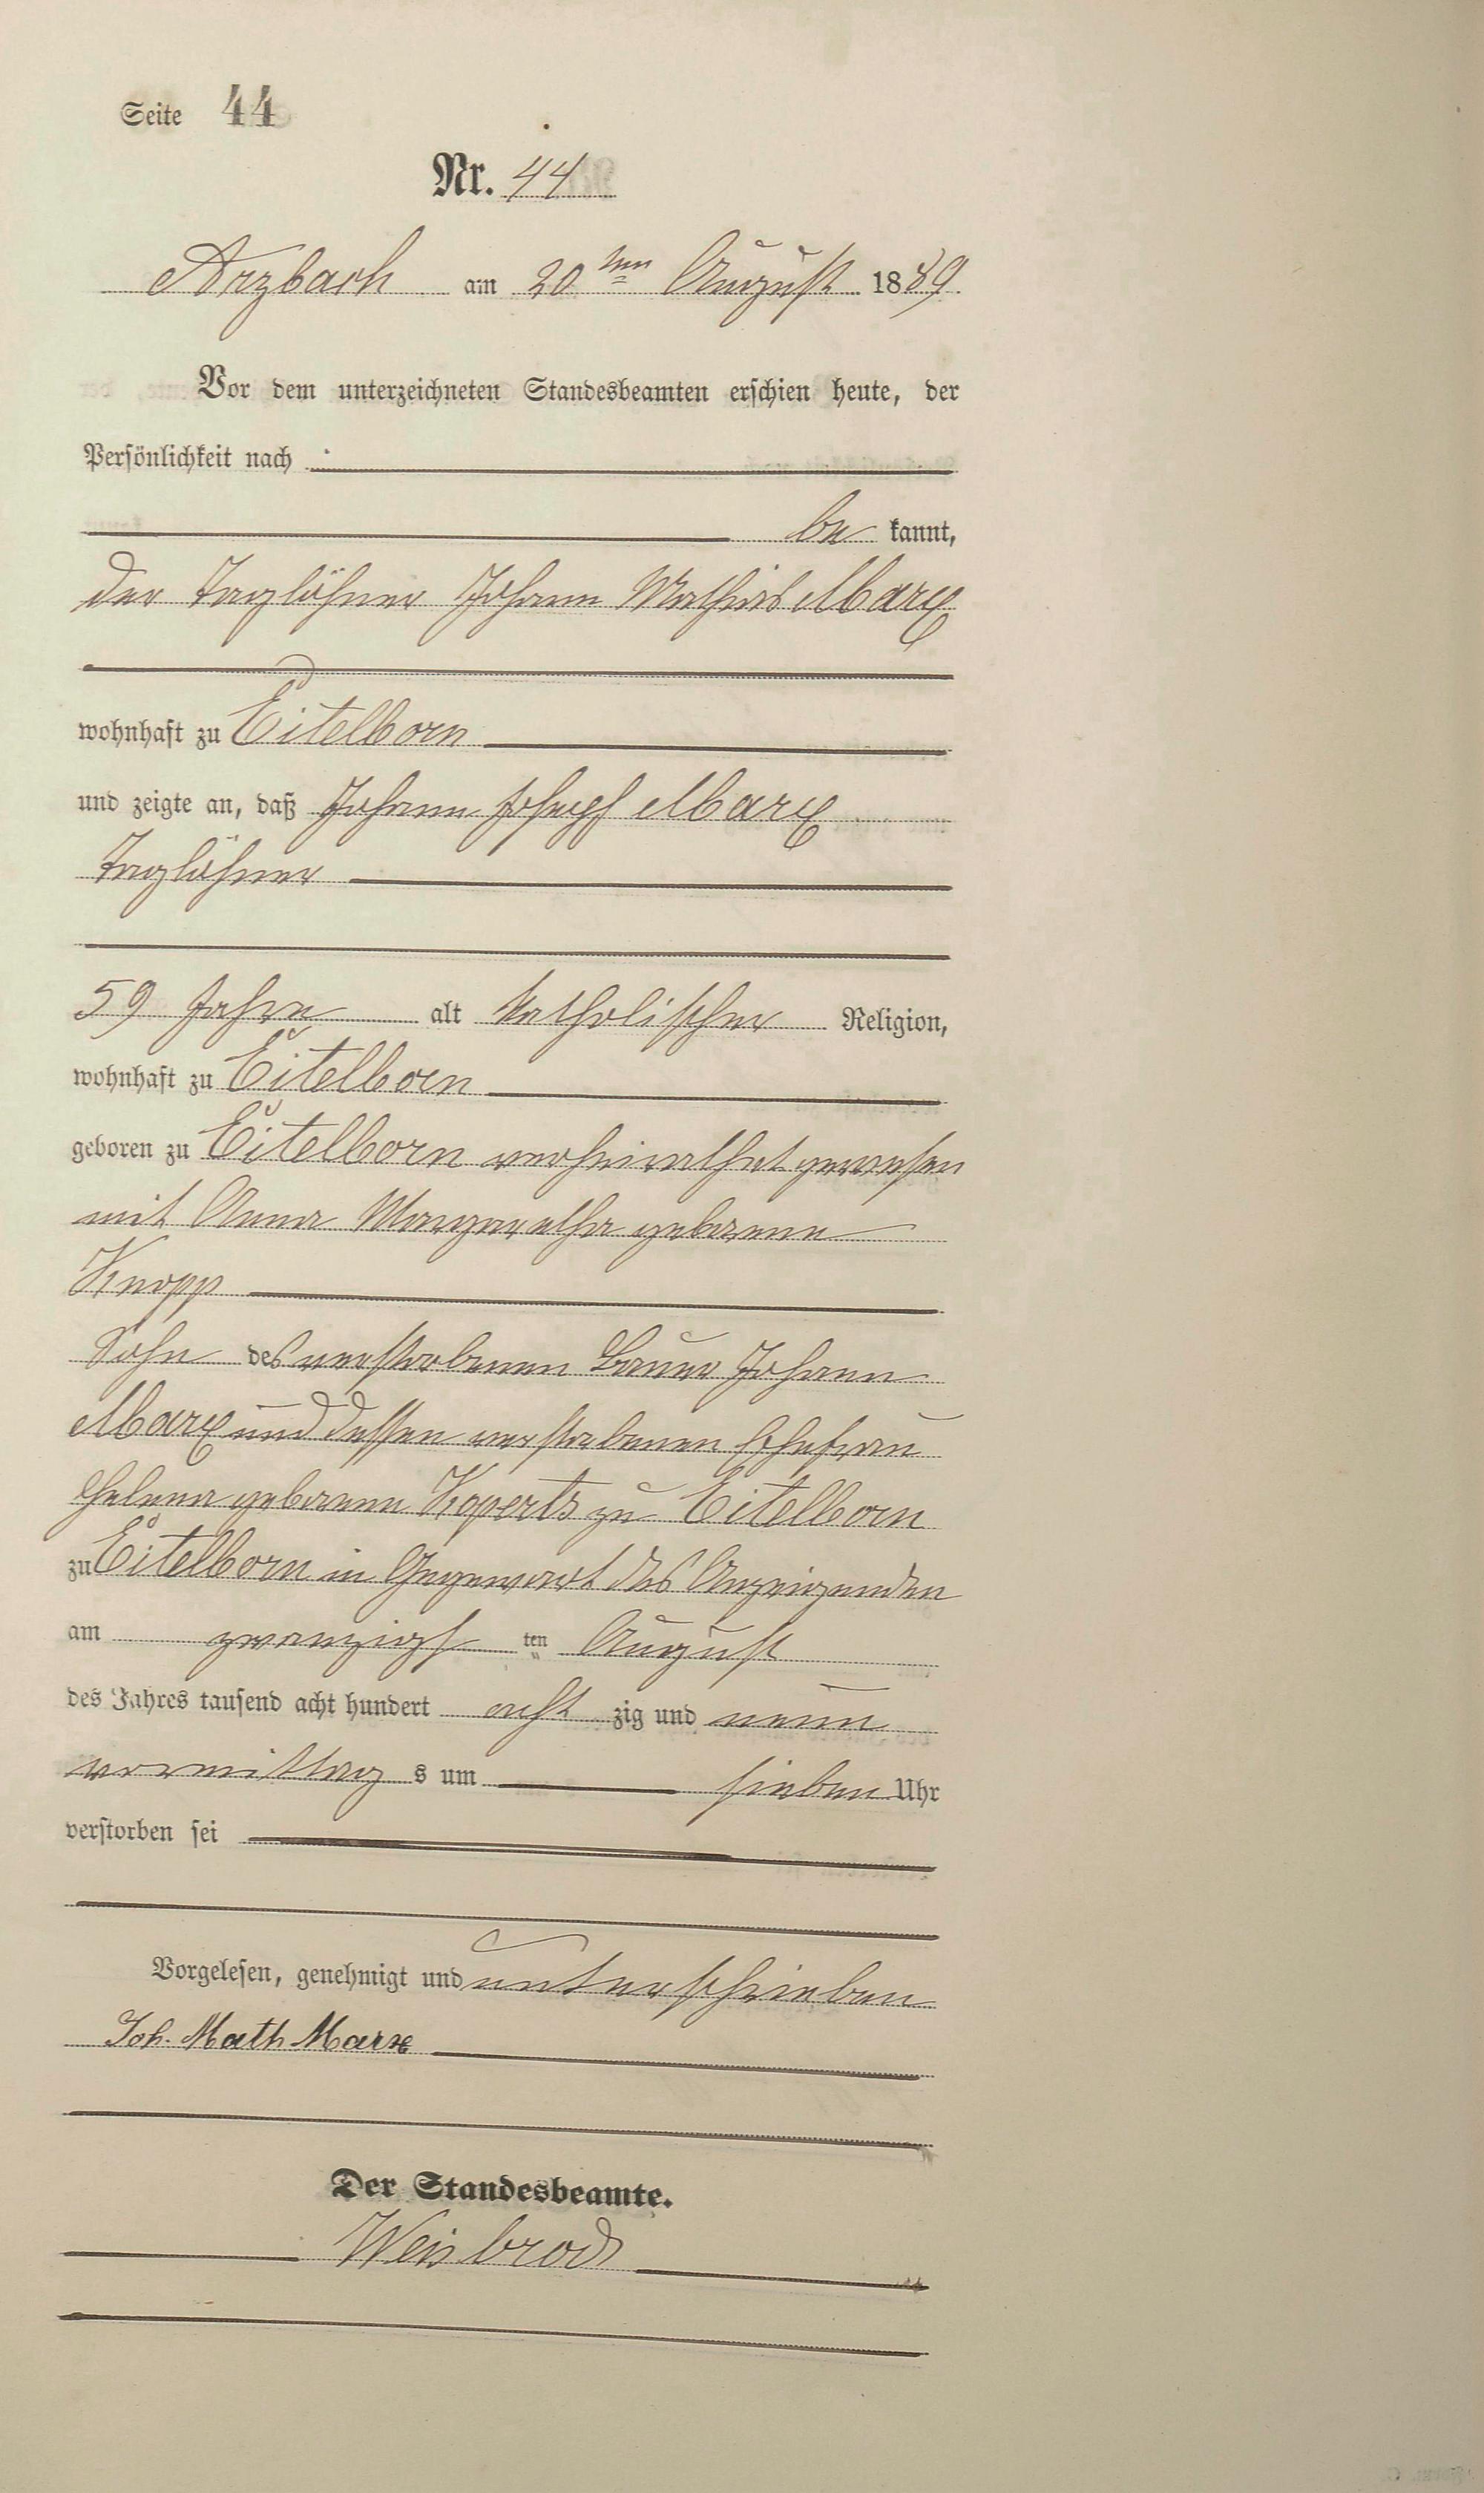 Seite 44
Nr. 44
Arzbach am 20ten August 1889.
Vor dem unterzeichneten Standesbeamten erschien heute, der
Persönlichkeit nach
be kannt,
der Taglöhner Johann Mathias Marx
wohnhaft zu Eitelborn
und zeigte an, daß Johann Joseph Marx
Taglöhner
59 Jahre alt katholischer Religion,
wohnhaft zu Eitelborn
geboren zu Eitelborn verheirathet gewesen
mit Anna Margaretha geborene
Knopp
Sohn des verstorbenen Bauer Johann
Marx und dessen verstorbenen Ehefrau
Helena geborene Koperts zu Eitelborn
zu Eitelborn in Gegenwart des Anzeigenden
am zwanzigs ten August
des Jahres tausend acht hundert acht zig und neun
vormittag s um sieben Uhr
verstorben sei
Vorgelesen, genehmigt und unterschrieben
Joh. Math Marx
Der Standesbeamte.
Weisbrod